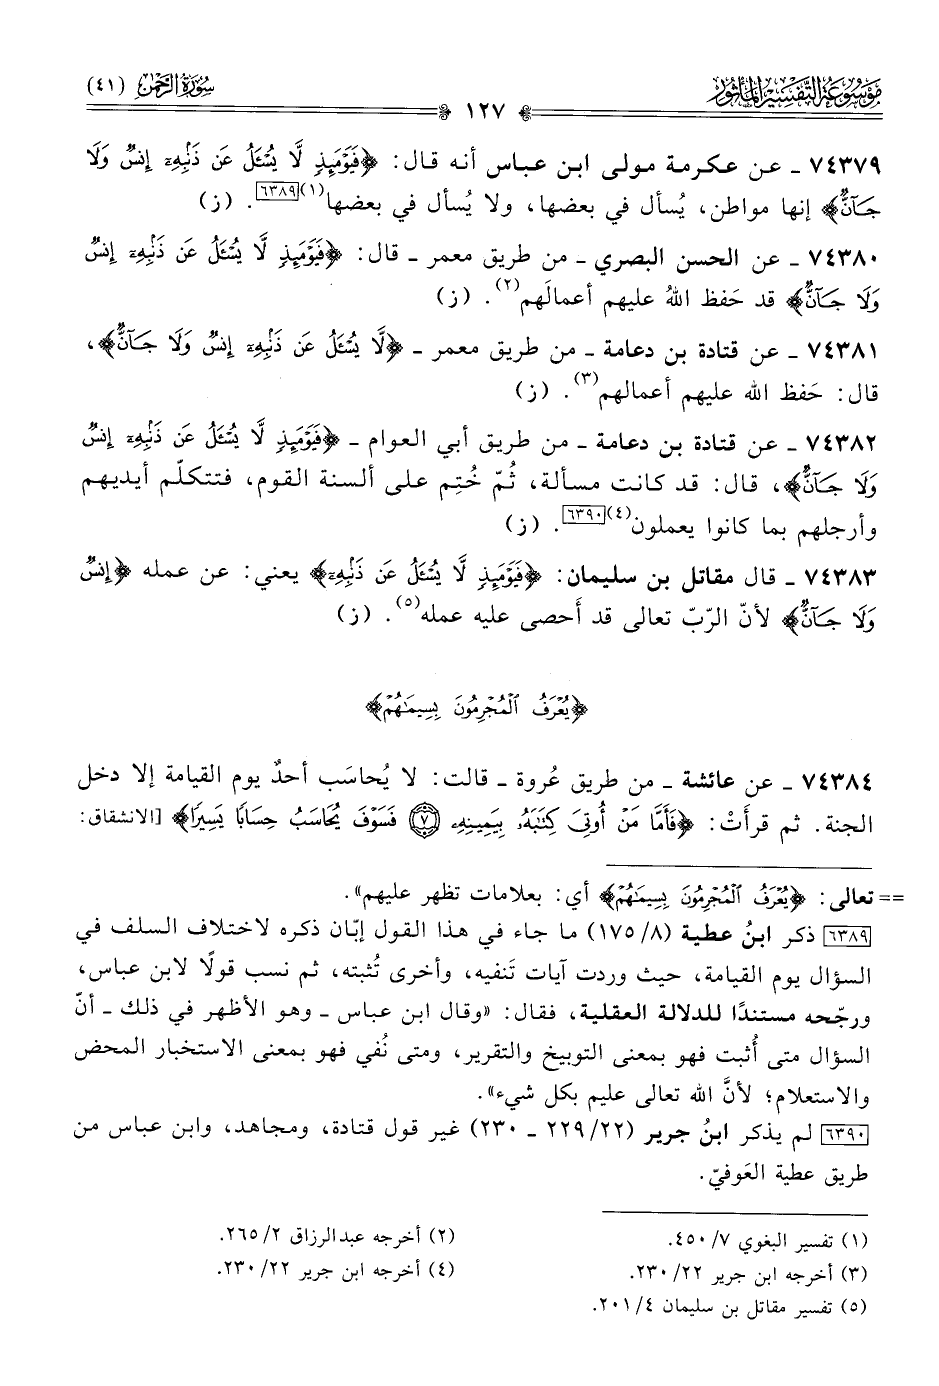 مَوْسُوعَة التَّفْسِير المَأْثُور
سُورَةُ الرَّحْمَٰن (٤١)
١٢٧
٧٤٣٧٩ ـ عن عكرمة مولى ابن عباس أنه قال: ﴿فَيَوْمَئِذٍ لَّا يُسْـَٔلُ عَن ذَنۢبِهِۦٓ إِنسٌ وَلَا
جَآنٌّ﴾ إنها مواطن، يُسأل في بعضها، ولا يُسأل في بعضها(١)[٦٣٨٩]. (ز)
٧٤٣٨٠ ـ عن الحسن البصري ـ من طريق معمر ـ قال: ﴿فَيَوْمَئِذٍ لَّا يُسْـَٔلُ عَن ذَنۢبِهِۦٓ إِنسٌ
وَلَا جَآنٌّ﴾ قد حَفظ اللهُ عليهم أعمالَهم(٢). (ز)
٧٤٣٨١ ـ عن قتادة بن دعامة ـ من طريق معمر ـ ﴿لَّا يُسْـَٔلُ عَن ذَنۢبِهِۦٓ إِنسٌ وَلَا جَآنٌّ﴾،
قال: حَفظ الله عليهم أعمالهم(٣). (ز)
٧٤٣٨٢ ـ عن قتادة بن دعامة ـ من طريق أبي العوام ـ ﴿فَيَوْمَئِذٍ لَّا يُسْـَٔلُ عَن ذَنۢبِهِۦٓ إِنسٌ
وَلَا جَآنٌّ﴾، قال: قد كانت مسألة، ثُمّ خُتِم على ألسنة القوم، فتتكلّم أيديهم
وأرجلهم بما كانوا يعملون(٤)[٦٣٩٠]. (ز)
٧٤٣٨٣ ـ قال مقاتل بن سليمان: ﴿فَيَوْمَئِذٍ لَّا يُسْـَٔلُ عَن ذَنۢبِهِۦٓ﴾ يعني: عن عمله ﴿إِنسٌ
وَلَا جَآنٌّ﴾ لأنّ الرّبّ تعالى قد أَحصى عليه عمله(٥). (ز)
﴿يُعْرَفُ ٱلْمُجْرِمُونَ بِسِيمَٰهُمْ﴾
٧٤٣٨٤ ـ عن عائشة ـ من طريق عُروة ـ قالت: لا يُحاسَب أحدٌ يوم القيامة إلا دخل
الجنة. ثم قرأَتْ: ﴿فَأَمَّا مَنْ أُوتِىَ كِتَٰبَهُۥ بِيَمِينِهِۦ ٧ فَسَوْفَ يُحَاسَبُ حِسَابًا يَسِيرًا﴾ [الانشقاق:
== تعالى: ﴿يُعْرَفُ ٱلْمُجْرِمُونَ بِسِيمَٰهُمْ﴾ أي: بعلامات تظهر عليهم».
[٦٣٨٩] ذكر ابنُ عطية (٨/ ١٧٥) ما جاء في هذا القول إبّان ذكره لاختلاف السلف في
السؤال يوم القيامة، حيث وردت آيات تَنفيه، وأخرى تُثبته، ثم نسب قولًا لابن عباس،
ورجّحه مستندًا للدلالة العقلية، فقال: «وقال ابن عباس ـ وهو الأظهر في ذلك ـ أنّ
السؤال متى أُثبت فهو بمعنى التوبيخ والتقرير، ومتى نُفي فهو بمعنى الاستخبار المحض
والاستعلام؛ لأنَّ الله تعالى عليم بكل شيء».
[٦٣٩٠] لم يذكر ابنُ جرير (٢٢/ ٢٢٩ ـ ٢٣٠) غير قول قتادة، ومجاهد، وابن عباس من
طريق عطية العَوفيّ.
(١) تفسير البغوي ٧/ ٤٥٠.
(٢) أخرجه عبدالرزاق ٢/ ٢٦٥.
(٣) أخرجه ابن جرير ٢٢/ ٢٣٠.
(٤) أخرجه ابن جرير ٢٢/ ٢٣٠.
(٥) تفسير مقاتل بن سليمان ٤/ ٢٠١.